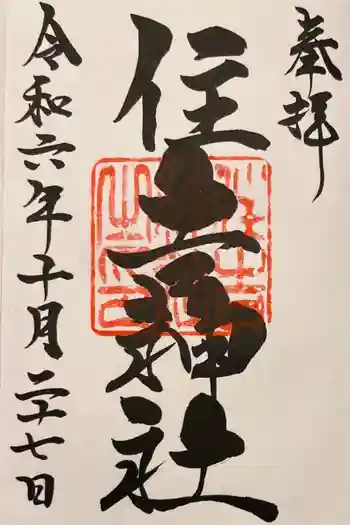 奉拝
住吉神社
令和六年十月二十七日